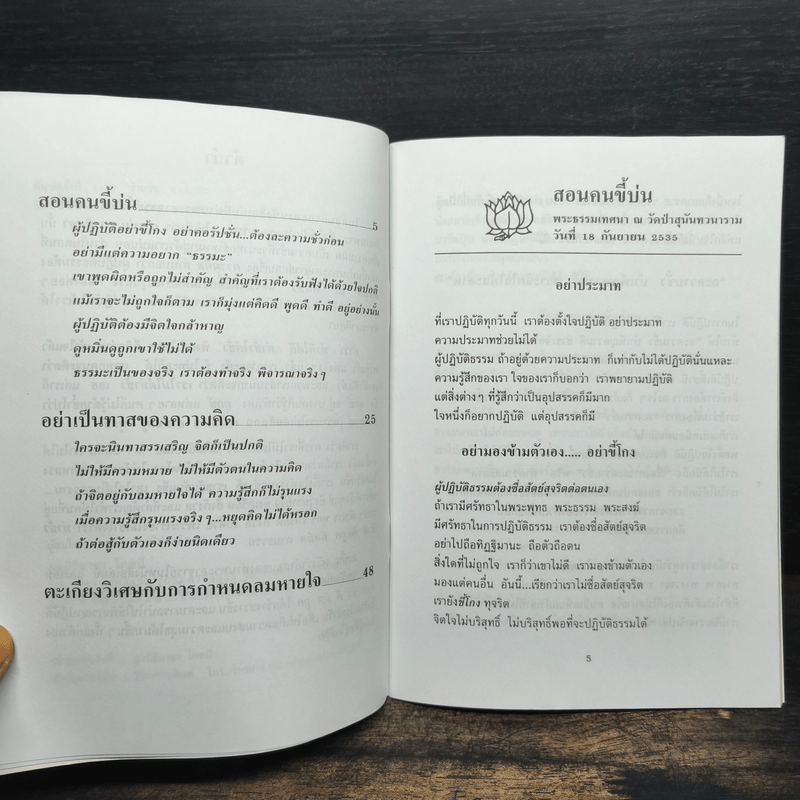 สอนคนขี้บ่น 5
ผู้ปฏิบัติอย่าขี้โกง อย่าคอรัปชั่น...ต้องละความชั่วก่อน
อย่ามีแต่ความอยาก "ธรรมะ"
เขาพูดผิดหรือถูกไม่สำคัญ สำคัญที่เราต้องรับฟังได้ด้วยใจปกติ
แม้เราจะไม่ถูกใจก็ตาม เราก็มุ่งแต่คิดดี พูดดี ทำดี อยู่อย่างนั้น
ผู้ปฏิบัติต้องมีจิตใจกล้าหาญ
ดูหมิ่นดูถูกเขาใช้ไม่ได้
ธรรมะเป็นของจริง เราต้องทำจริง พิจารณาจริงๆ
อย่าเป็นทาสของความคิด 25
ใครจะนินทาสรรเสริญ จิตก็เป็นปกติ
ไม่ให้มีความหมาย ไม่ให้มีตัวตนในความคิด
ถ้าจิตอยู่กับลมหายใจได้ ความรู้สึกก็ไม่รุนแรง
เมื่อความรู้สึกรุนแรงจริงๆ...หยุดคิดไม่ได้หรอก
ถ้าต่อสู้กับตัวเองก็ง่ายนิดเดียว
ตะเกียงวิเศษกับการกำหนดลมหายใจ 48
สอนคนขี้บ่น
พระธรรมเทศนา ณ วัดป่าสุนันทวนาราม
วันที่ 18 กันยายน 2535
อย่าประมาท
ที่เราปฏิบัติทุกวันนี้ เราต้องตั้งใจปฏิบัติ อย่าประมาท
ความประมาทช่วยไม่ได้
ผู้ปฏิบัติธรรม ถ้าอยู่ด้วยความประมาท ก็เท่ากับไม่ได้ปฏิบัตินั่นแหละ
ความรู้สึกของเรา ใจของเราก็บอกว่า เราพยายามปฏิบัติ
แต่สิ่งต่างๆ ที่รู้สึกว่าเป็นอุปสรรคก็มีมาก
ใจหนึ่งก็อยากปฏิบัติ แต่อุปสรรคก็มี
อย่ามองข้ามตัวเอง..... อย่าขี้โกง
ผู้ปฏิบัติธรรมต้องซื่อสัตย์สุจริตต่อตนเอง
ถ้าเรามีศรัทธาในพระพุทธ พระธรรม พระสงฆ์
มีศรัทธาในการปฏิบัติธรรม เราต้องซื่อสัตย์สุจริต
อย่าไปถือทิฏฐิมานะ ถือตัวถือตน
สิ่งใดที่ไม่ถูกใจ เราก็ว่าเขาไม่ดี เรามองข้ามตัวเอง
มองแต่คนอื่น อันนี้...เรียกว่าเราไม่ซื่อสัตย์สุจริต
เรายังขี้โกง ทุจริต
จิตใจไม่บริสุทธิ์ ไม่บริสุทธิ์พอที่จะปฏิบัติธรรมได้
5